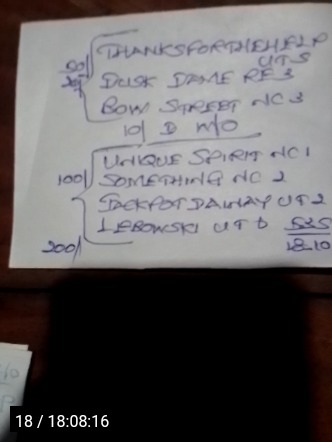 THANKSFORTHEHELP
UT5
50/
DUSK DAME RE3
BOW STREET NC3
10/ D M/O
UNIQUE SPIRIT NC1
100/ SOMETHING NC2
JACKPOT DAINAY UT2
LEBOWSKI UT
525
200/
18-10
18 / 18:08:16